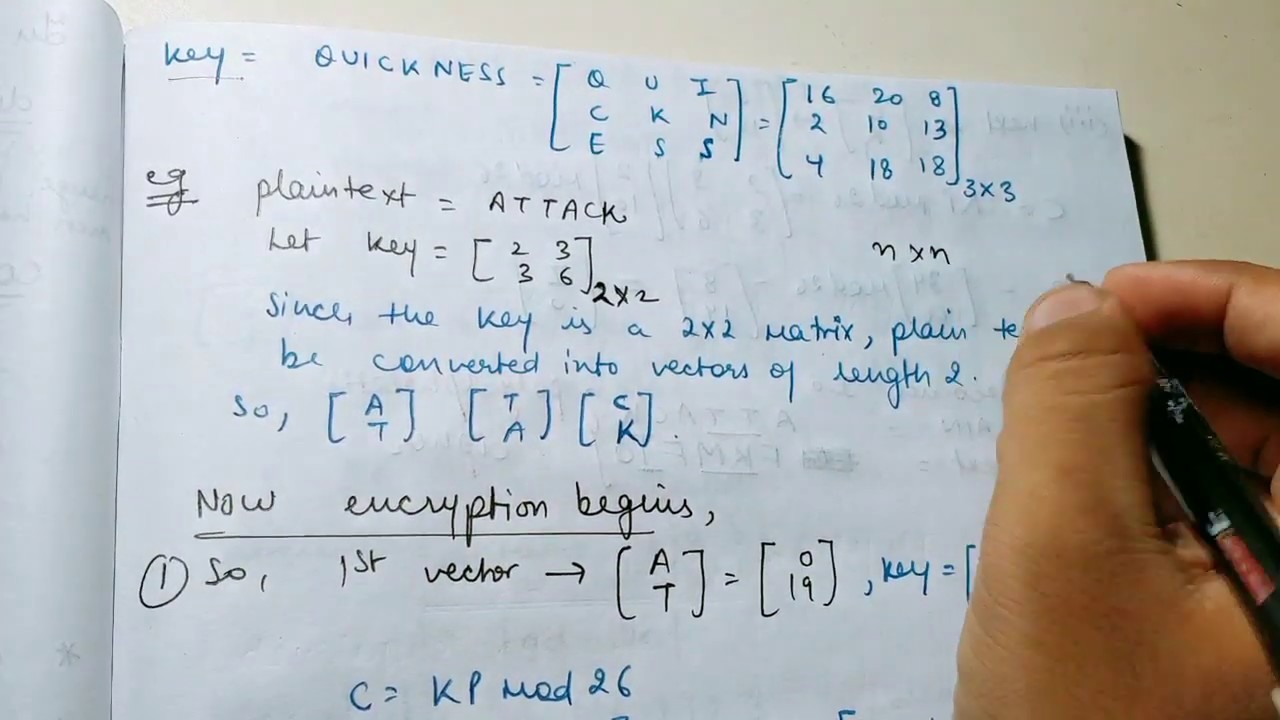 Key = QUICKNESS = [ Q U I = [ 16 20 8
C K N 2 10 13
E S S ] 4 18 18 ] 3×3
eg plaintext = ATTACK
Let key = [ 2 3 n×n
3 6 ] 2×2
Since the key is a 2×2 matrix, plain te
be converted into vectors of length 2.
So, [ A [ T [ C
T ] A ] K ].
Now encryption begins,
① So, 1st vector → [ A = [ 0 , key = [
T ] 19 ]
C = KP mod 26